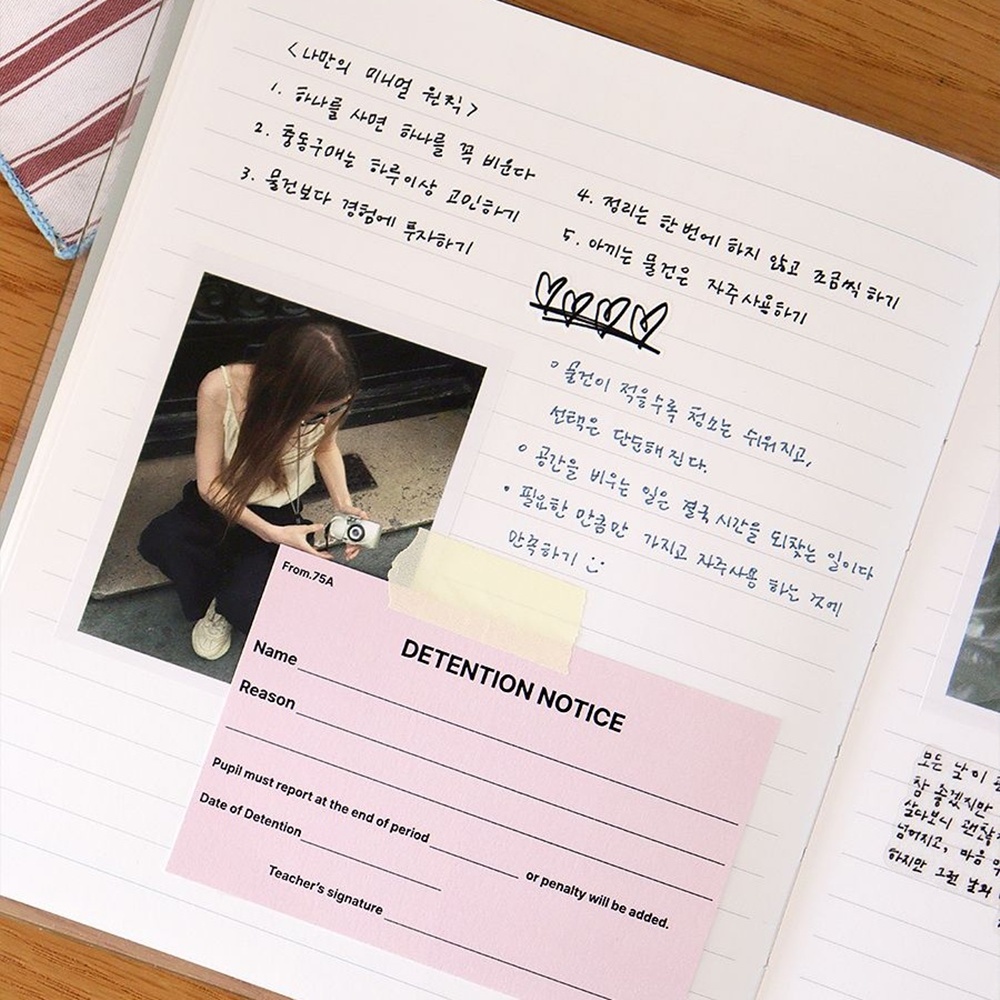 <나만의 미니멀 원칙>
1. 하나를 사면 하나를 꼭 비운다
2. 충동구매는 하루이상 고민하기
3. 물건보다 경험에 투자하기
4. 정리는 한번에 하지 않고 조금씩 하기
5. 아끼는 물건은 자주사용하기
◦ 물건이 적을수록 청소는 쉬워지고,
선택은 단순해진다.
◦ 공간을 비우는 일은 결국 시간을 되찾는 일이다
• 필요한 만큼만 가지고 자주사용 하는 것에
만족하기
From.75A
DETENTION NOTICE
Name
Reason
Pupil must report at the end of period or penalty will be added.
Date of Detention
Teacher's signature
모든 날이
참 좋겠지만
살다보니 괜찮
넘어지고, 마음
하지만 그런 날의